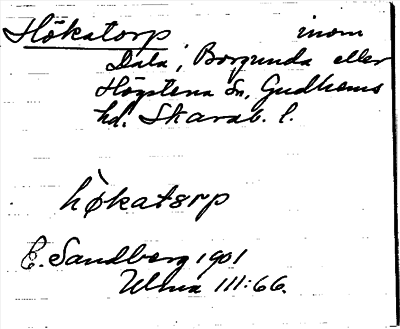 Hökatorp inom
Dala, Borgunda eller
Högstena sn, Gudhems
hd. Skarab. l.
hòkatorp
E. Sandberg 1901
Ulma 111:66.